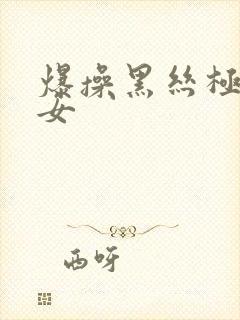 爆操黑丝極
女
西呀